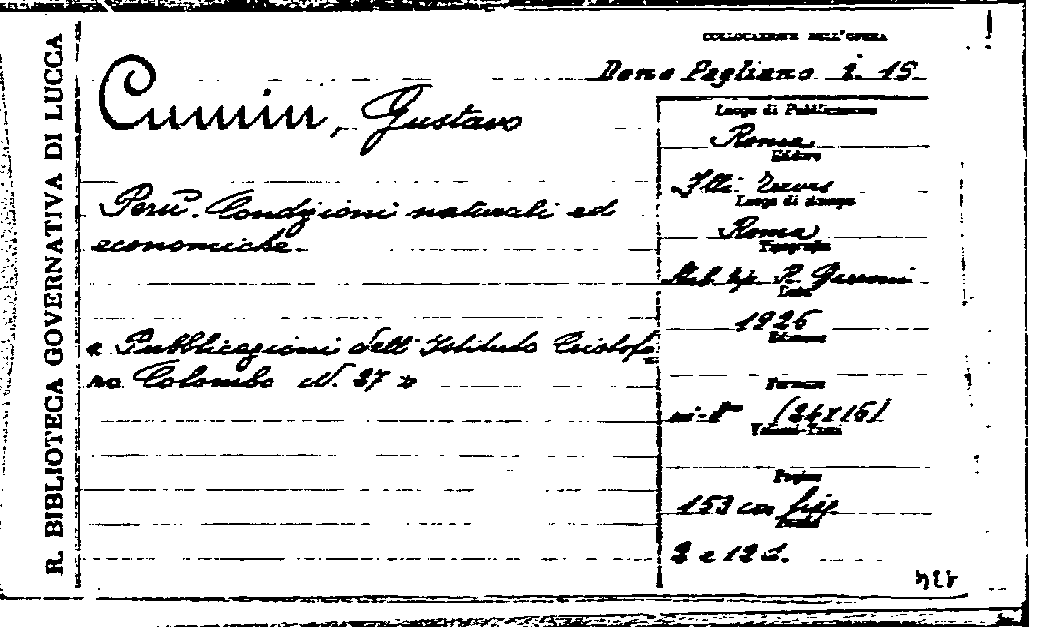 R. BIBLIOTECA GOVERNATIVA DI LUCCA
COLLOCAZIONE DELL'OPERA
Dono Pagliano i. 15.
Cumin, Gustavo
Perù. Condizioni naturali ed
economiche.
« Pubblicazioni dell'Istituto Cristofo=
ro Colombo N. 27 »
Luogo di Pubblicazione
Roma
Editore
F.lli Treves
Luogo di stampa
Roma
Tipografia
Stab. tip. R. Garroni
Data
1926
Edizione
Formato
in-8° (24x16)
Pagine
153 con figg.
2 e 12 d.